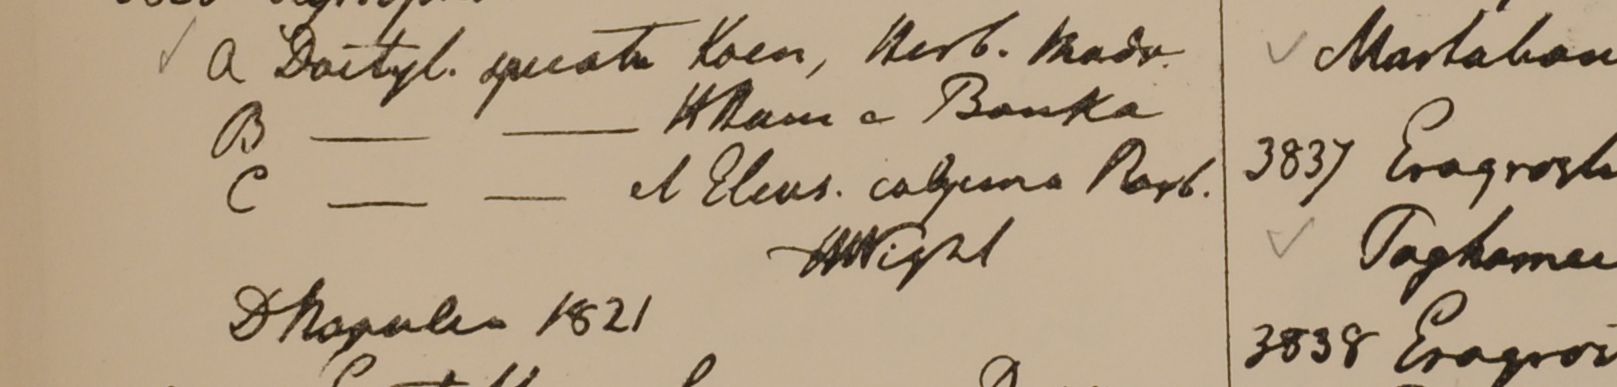 A Dactyl. spicata Koen, Herb. Madr.
B — — H Ham e Banka
C — — et Eleus. calycina Roxb.
HWight
D Napalia 1821
Martaban
3837 Eragrosti
Taghamew
3838 Eragros